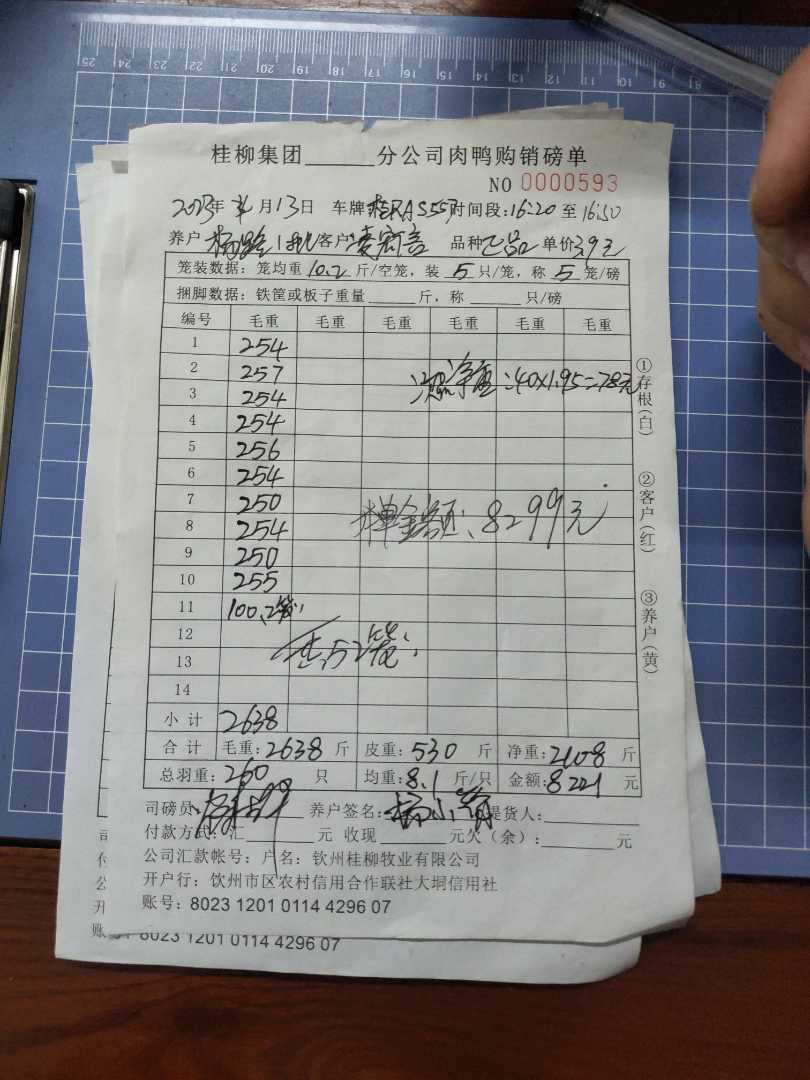 桂柳集团______分公司肉鸭购销磅单
NO 0000593
2023年 月13日 车牌 时间段:16:20至16:50
养户 客户 品种 正品 单价3.9元
笼装数据：笼均重10.2斤/空笼，装5只/笼，称5笼/磅
捆脚数据：铁筐或板子重量______斤，称______只/磅
编号 毛重 毛重 毛重 毛重 毛重 毛重
1 254
2 257
净重:40×1.95=78元
3 254
4 254
5 256
6 254
7 250
单金额:8299元
8 254
9 250
10 255
11 100.2笼
12
52笼
13
14
小计 2638
合计 毛重:2638斤 皮重:530斤 净重:2108斤
总羽重:260只 均重:8.1斤/只 金额:8221元
司磅员 养户签名: 杨小 提货人:
付款方式:汇______元 收现______元欠(余):______元
公司汇款帐号：户名：钦州桂柳牧业有限公司
开户行：钦州市区农村信用合作联社大垌信用社
账号：8023 1201 0114 4296 07
①存根(白)
②客户(红)
③养户(黄)
司
付
公
开
账 8023 1201 0114 4296 07
25 24 23 22 21 20 19 18 17 16 15 14 13 12 11 10 9 8